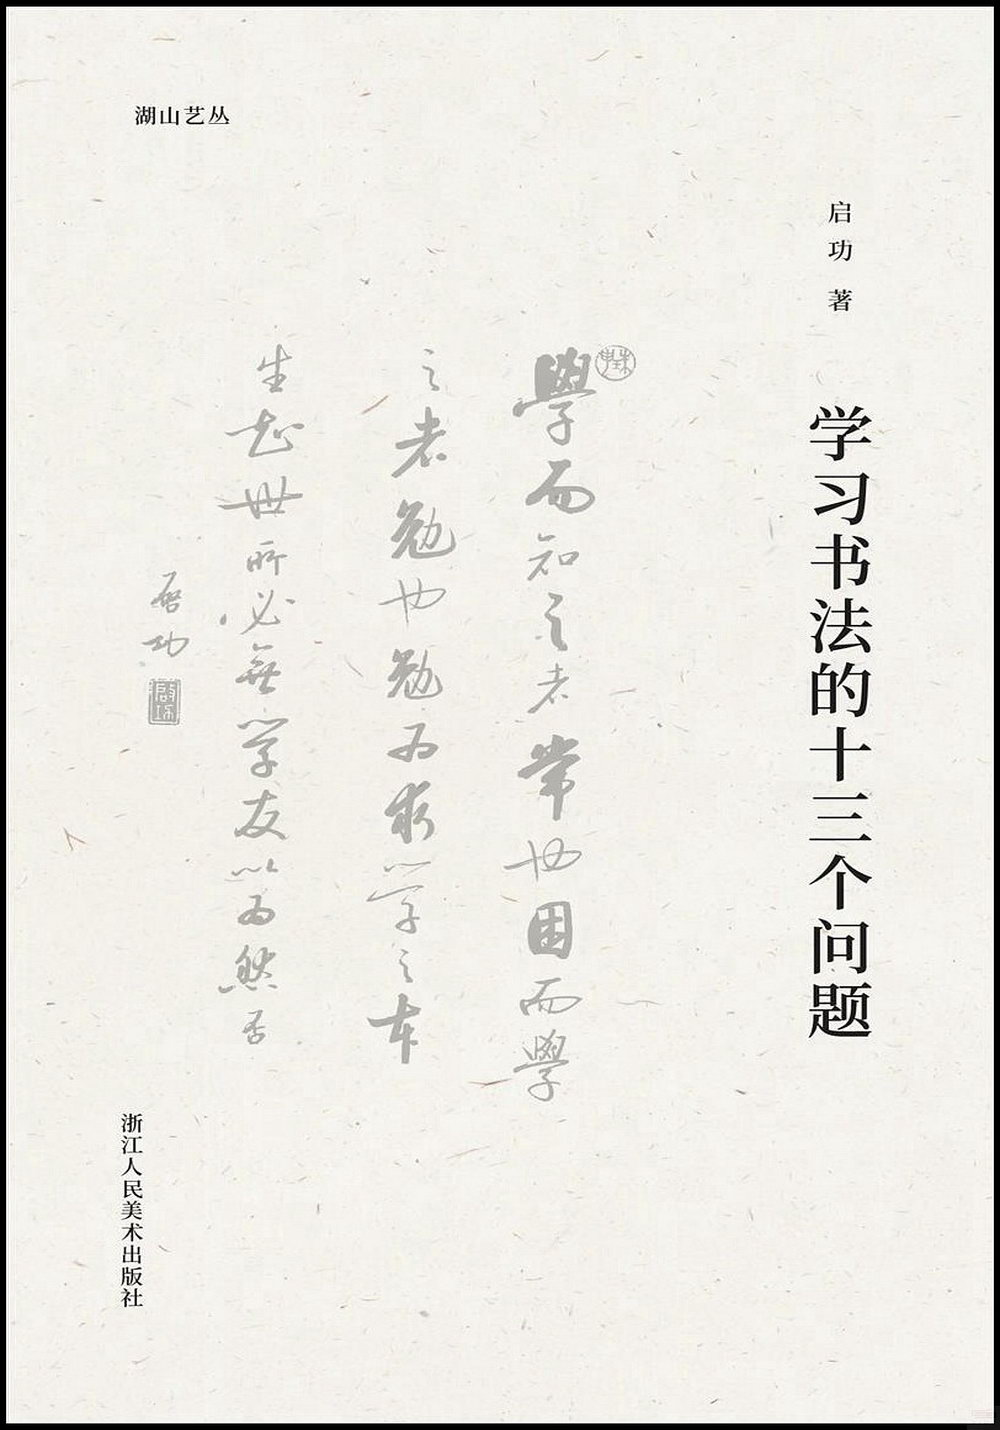 湖山艺丛
启功 著
学习书法的十三个问题
學而知之者常也困而學
之者勉也勉为求学之本
生知世所必無学友以为然否
啓功
浙江人民美术出版社